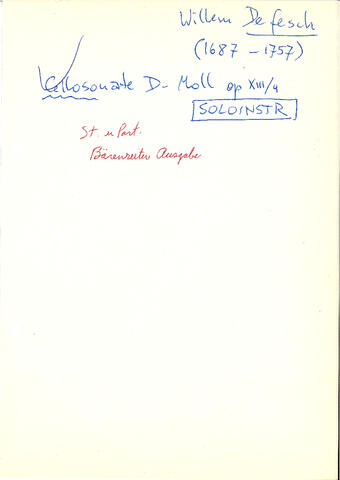 Willem De fesch
(1687 - 1757)
Cellosonate D-Moll op XIII/4
SOLOINSTR
St. u Part.
Bärenreiter Ausgabe